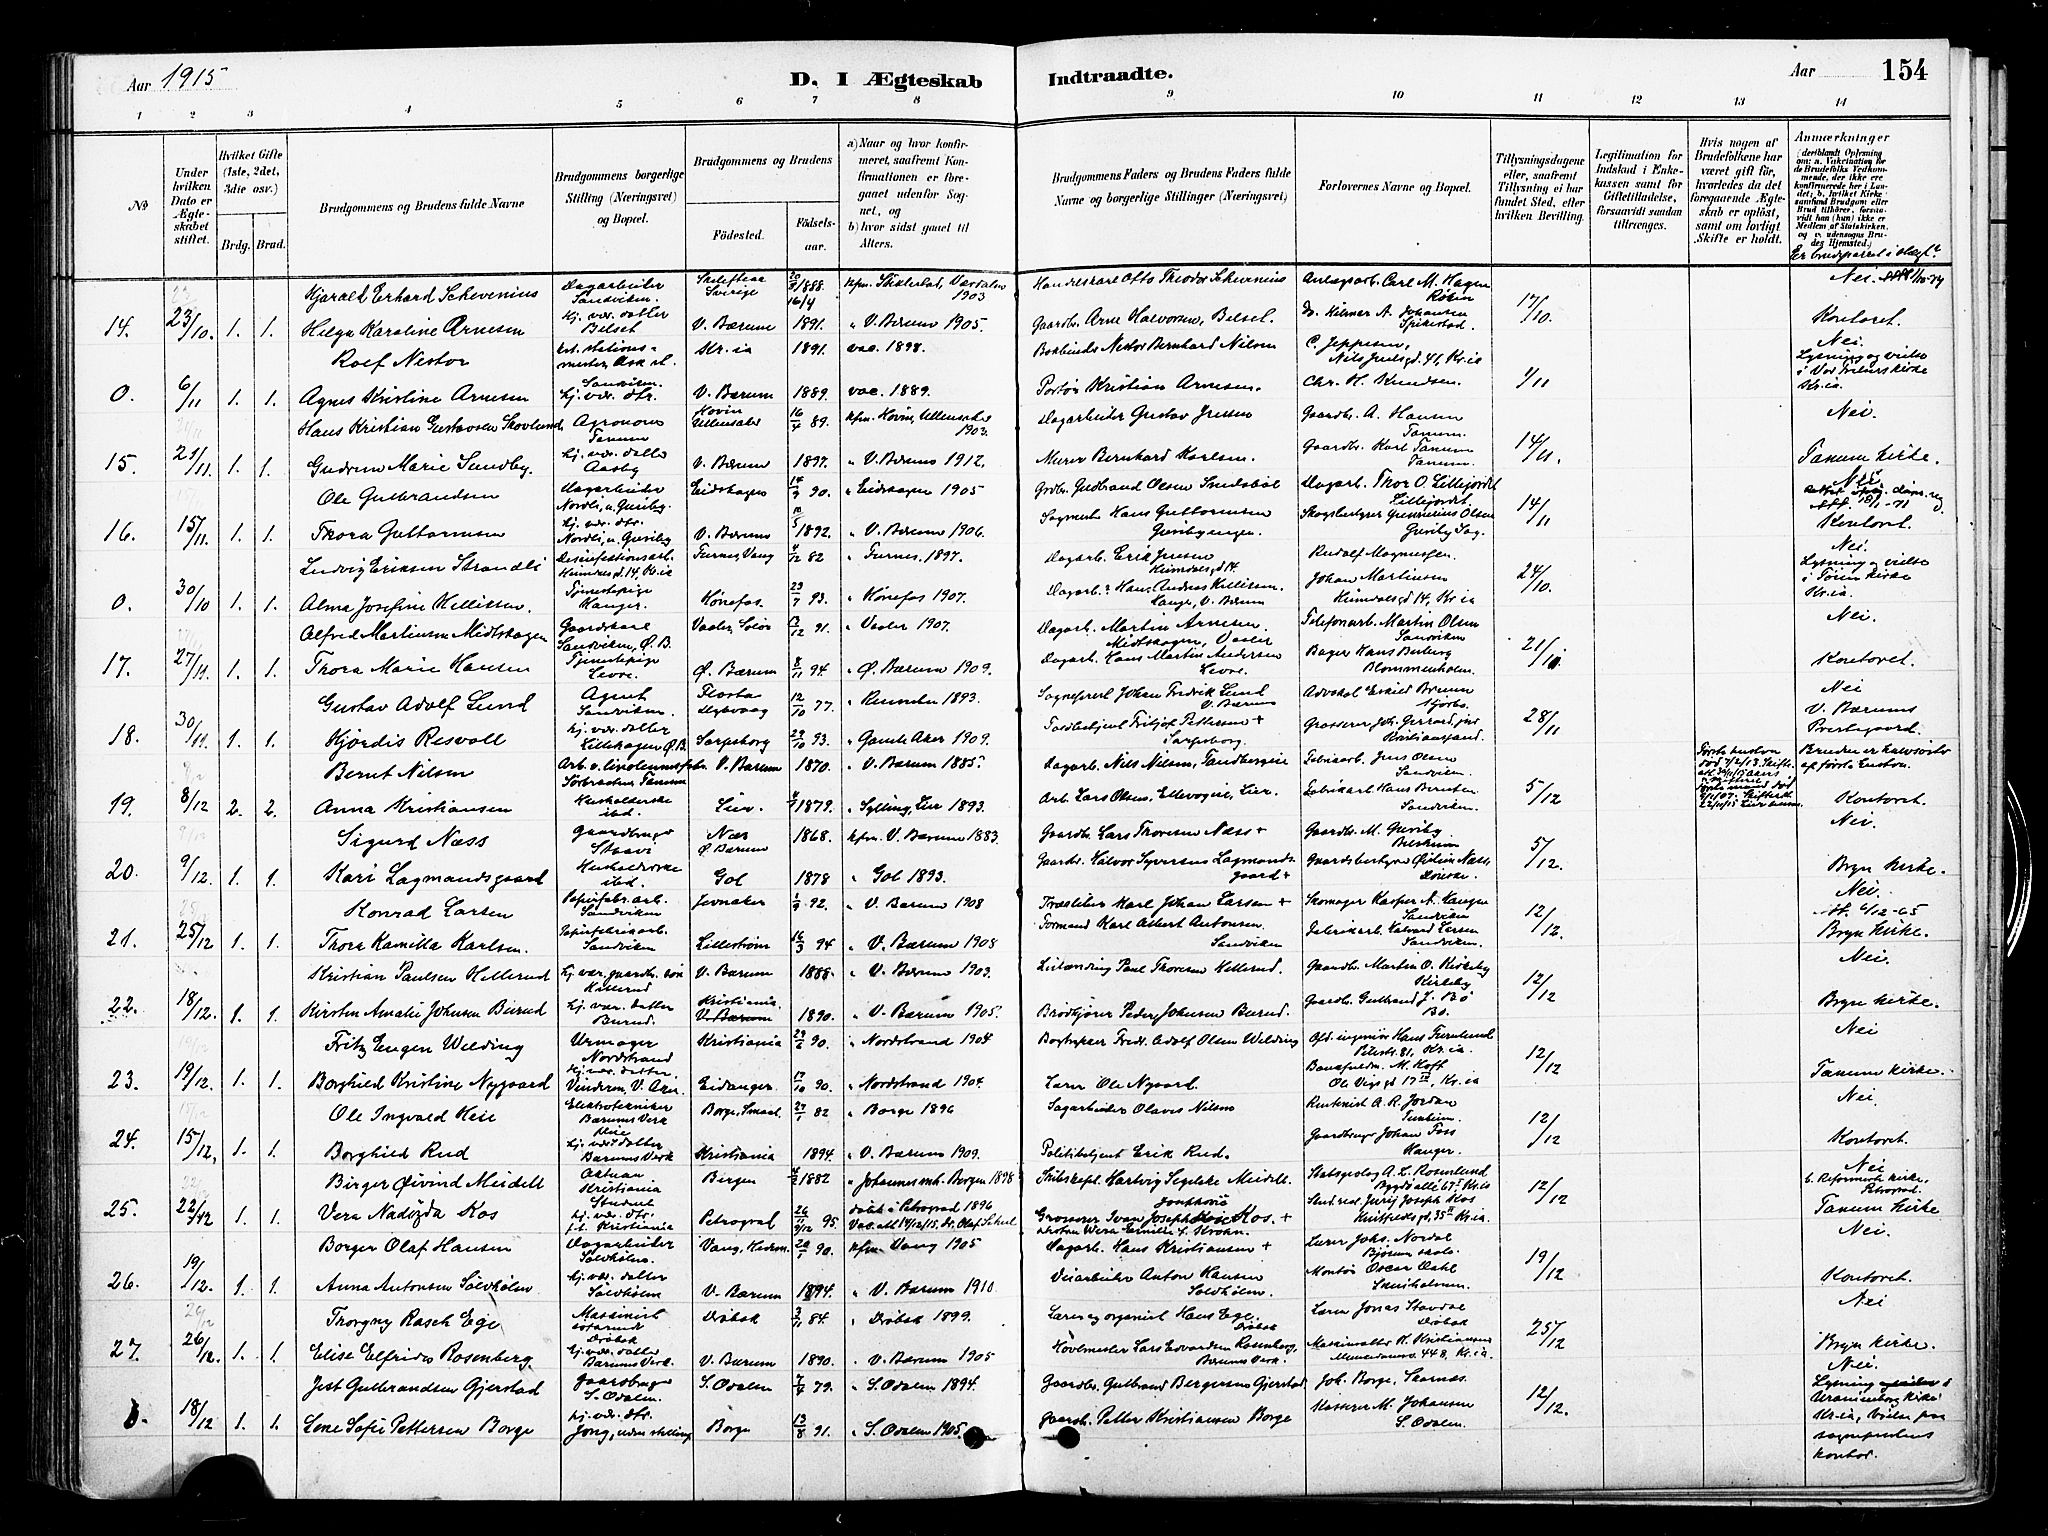 Aar 1915
D. I Ægteskab Indtraadte.
Aar
154
1 2 3 4 5 6 7 8 9 10 11 12 13 14
No
Under hvilken Dato er Ægteskabet stiftet.
Hvilket Gifte (1ste, 2det, 3die osv.)
Brdg. Brud.
Brudgommens og Brudens fulde Navne
Brudgommens borgerlige Stilling (Næringsvei) og Bopæl.
Brudgommens og Brudens
Fødested. Fødselsaar.
a) Naar og hvor konfirmeret, saafremt Konfirmationen er foregaaet udenfor Sognet, og
b) hvor sidst gaaet til Alters.
Brudgommens Faders og Brudens Faders fulde Navne og borgerlige Stillinger (Næringsvei)
Forlovernes Navne og Bopæl.
Tillysningsdagene eller, saafremt Tillysning ei har fundet Sted, efter hvilken Bevilling.
Legitimation for Indskud i Enkekassen samt for Giftetilladelse, forsaavidt saadan tiltrænges.
Hvis nogen af Brudefolkene har været gift før, hvorledes da det foregaaende Ægteskab er opløst, samt om lovligt Skifte er holdt.
Anmærkninger
(deriblandt Oplysning om: a. Vakcination for de Brudefolks Vedkommende, der ikke ere konfirmerede her i Landet; b. hvilket Kirkesamfund Brudgom eller Brud tilhører, forsaavidt han (hun) ikke er Medlem af Statskirken, og v. udensogns Brudes Hjemsted.)
Er brudeparret i slægt?
Hjarald Erhard Schevenius Dagarbeider Sandviken. Skelefteaa Sverige 1888. kfm. Stiklestad, Værdalen 1903 Otto Theodor Schevenius Anlægsarb. Carl M. Hagen Røken 17/10. Nei.
14. 23/10. 1. 1. Helga Karoline Arnesen hj. vær. datter Belset V. Bærum 16/4 1891. " V. Bærum 1905. Gaardbr. Arne Halvorsen, Belset. Hilmar A. Johansen Spikestad. Kontoret.
Rolf Nestor stationsmester, Ask st. Kr.ia 1891. vac. 1898. Bokbinder Nestor Bernhard Nilsen C. Jeppesen, Nils Juelsgd. 41, Kr.ia Nei. Lysning og vielse i Vor Frelsers kirke Kr.ia.
0. 6/11 1. 1. Agnes Kristine Arnesen Sandviken. hj. vær. dtr. V. Bærum 1889. vac. 1889. Portør Kristian Arnesen. Chr. H. Knudsen. 1/11
Hans Kristian Gustavsen Skovlund Agronom Tanum Hovin Ullensaker 16/4 89. kfm. Hovin, Ullensaker 1903. Dagarbeider Gustav Jensen Gaardbr. A. Hansen Tanum. 14/11. Nei.
15. 21/11. 1. 1. Gudrun Marie Sundby. hj. vær. datter Aasby V. Bærum 1897. " V. Bærum 1912. Murer Bernhard Karlsen. Gaardbr. Karl Tanum Tanum. Tanum kirke.
Ole Gulbrandsen Dagarbeider Nordli, u. Gursby Eidskogen 14/9 90. " Eidskogen 1905 Gdbr. Gudbrand Olsen Dagarb. Thor O. Lillejordet Lillejordet 14/11 Nei.
16. 15/11. 1. 1. Thora Guttormsen hj. vær. dtr. Nordli, u. Gursby V. Bærum 1892. " V. Bærum 1906. Sagmester Hans Guttormsen Skogsbestyrer Gunnerius Olsen Sag. Kontoret.
Ludvig Eriksen Strandli Desinfektionsarb. Heimdalsgd. 14, Kr.ia Furnes, Vang 4/12 82 " Furnes. 1897. Dagarb. Erik Jensen Heimdalsgd. 14. Rudolf Magnussen. 24/10. Nei. Lysning og vielse i Tøien kirke Kr.ia.
0. 30/10 1. 1. Alma Josefine Killissen. Tjenestepige Hanger. Hønefos. 23/7 93. " Hønefos 1907. Dagarb. Hans Andreas Killissen. Hanger, V. Bærum Johan Martinsen Heimdalsgd. 14, Kr.ia
Alfred Martinsen Midtskogen Gaardskarl Sandviken, Ø. B. Vaaler, Solør 13/12 91. " Vaaler 1907. Dagarb. Martin Arnesen Midtskogen, Vaaler Telefonarb. Martin Olsen Sandviken 21/11. Nei.
17. 27/11. 1. 1. Thora Marie Hansen Tjenestepige Løvre. Ø. Bærum 8/11 94. " Ø. Bærum 1909. Dagarb. Hans Martin Andersen Løvre. Bager Hans Blommenholm. Kontoret.
Gustav Adolf Lund Agent Sandviken. Flosta Dybvaag 12/10 77. 1893. Sogneprest Johan Fredrik Lund V. Bærum Advokat 28/11 Nei
18. 30/11. 1. 1. Hjørdis Resvoll hj. vær. datter Lillehagen Ø. B. Sarpsborg 29/10 93. " Gamle Aker 1909. Fritjof Pettersen + Sarpsborg. Grosserer Joh. Gerrard, jnr Kristianssand. V. Bærums Prestegaard.
Bernt Nilsen Arb. v. linoleumsfabr. Sørbraaten Tanum V. Bærum 1870. " V. Bærum 1885. Dagarb. Nils Nilsen, Fabrikarb. Jens Olsen Sandviken. 5/12 Bruden er halvsøster af første hustru.
19. 8/12 2. 2. Anna Kristiansen Husholderske ibd. Lier. 1879. " Sylling, Lier 1893. Arb. Lars Olsen, Lier. Fabrikarb. Hans Berntsen Sandviken. Kontoret.
Sigurd Næss Gaardbruger Staavi Næs Ø. Bærum 1868. kfm. V. Bærum 1883 Gaardbr. Lars Thoresen Næss + Gaardbr. M. Gursby 5/12. Nei.
20. 9/12. 1. 1. Kari Lagmandsgaard Husholderske ibd. Gol 1878 " Gol 1893. Gaardbr. Halvor Syversen Lagmandsgaard + Gaardsbestyrer Øistein Næss Bryn kirke.
Konrad Larsen Papirfabr.arb. Sandviken Jevnaker 1/9 92. " V. Bærum 1908 Træsliber Karl Johan Larsen + Skomager Kasper A. Hanger Sandviken 12/12. Nei. 6/12-65
21. 25/12 1. 1. Thora Kamilla Karlsen. Papirfabrikarb. Sandviken Lillestrøm 16/3 94 " V. Bærum 1908 Formand Karl Albert Antonsen Sandviken Fabrikarb. Edvard Larsen Sandviken. Bryn kirke.
Kristian Paulsen Hellerud hj. vær. gaardbr. søn Hellerud V. Bærum 1888. " V. Bærum 1903. Paul Thoresen Hellerud. Gaardbr. Martin O. Kirkeby Kirkeby 12/12 Nei.
22. 18/12. 1. 1. Kirsten Amalie Johnsen Burud hj. vær. datter Burud. Kristiania V. Bærum 1890. " V. Bærum 1905. Brødkjører Peder Johnsen Burud. Gaardbr. Gulbrand J. Bø Bø. Bryn kirke.
Fritz Eugen Welding Urmager Nordstrand Kristiania 29/6 90. " Nordstrand 1904 Bogtrykker Fredr. Adolf Olsen Welding Afd. ingeniør Hans Furulund Pilestr. 81, Kr.ia. 12/12 Nei
23. 19/12. 1. 1. Borghild Kristine Nygaard hj. vær. datter. Vinderen, V. Aker Eidanger. 17/10 90. " Nordstrand 1904. Lærer Ole Nygaard. M. Koft Ole Vigsgd 17 II, Kr.ia. Tanum kirke.
Ole Ingvald Heie Elektrotekniker Bærums Verk Borge, Smaal. 27/1 82 " Borge 1896 Sagarbeider Olaves Nilsen Rentenist A. R. Jordan 12/12 Nei.
24. 15/12. 1. 1. Borghild Rud hj. vær. datter Bærums Verk Kristiania 1894. " V. Bærum 1909. Politibetjent Erik Rud. Gaardbruger Johan Foss Hanger. Kontoret.
Birger Øivind Meidell Aktuar Kristiania Bergen 1882 " Johannes mh. Bergen 1898 Skibskapt. Hartvig Segelcke Meidell. Statsgeolog A. L. Rosenlund Bygdø allé 67 I Kr.ia 12/12 Nei b. Reformerte kirke, Petrograd.
25. 22/12 1. 1. Vera Nadezda Kos Student hj. vær. dtr. p.t. Kristiania Petrograd 95. døbt i Petrograd 1896 Grosserer Ivan Joseph Kos. + Stud. real. Jurij Joseph Kos 35 II Kr.ia. Tanum Kirke
Borger Olaf Hansen Dagarbeider Soldhølm. Vang, Hedem. 20/1 90. kfm. Vang 1905 Dagarb. Hans Kristiansen + Lærer Johs. Nordal Bjørum skole. 19/12 Nei.
26. 19/12. 1. 1. Anna Antonsen Soldhølm hj. vær. datter Soldhølm V. Bærum 1894. " V. Bærum 1910 Veiarbeider Anton Hansen Soldhølm. Montør Oscar Dahl Kontoret.
Thorgny Rasch Ege Maskinist Drøbak Drøbak 3/11 84. " Drøbak 1899. Lærer og organist Hans Ege. Drøbak Lærer Jonas Stavdal Drøbak 25/12 Nei
27. 26/12. 1. 1. Elise Elfrida Rosenberg. hj. vær. datter Bærums Verk. V. Bærum 1890. " V. Bærum 1905 Høvlmester Lars Edvardsen Rosenberg, Bærums Verk. H. Kristiansen 44 B, Kr.ia. Bryn kirke.
Jost Gulbrandsen Gjerstad Gaardbruger S. Odalen. S. Odalen 7/7 79. " S. Odalen 1894. Gaardbr. Gulbrand Bergersen Gjerstad Joh. Borge, Skarnæs. 12/12. Nei. Lysning i Uranienborg kirke Kr.ia, vielse paa sogneprestens kontor.
0. 18/12 1. 1. Lene Sofie Pettersen Borge hj. vær. dtr. Jong, uden stilling Borge 13/8 91. " S. Odalen 1905. Gaardbr. Petter Kristiansen Borge Kasserer M. Johansen S. Odalen.